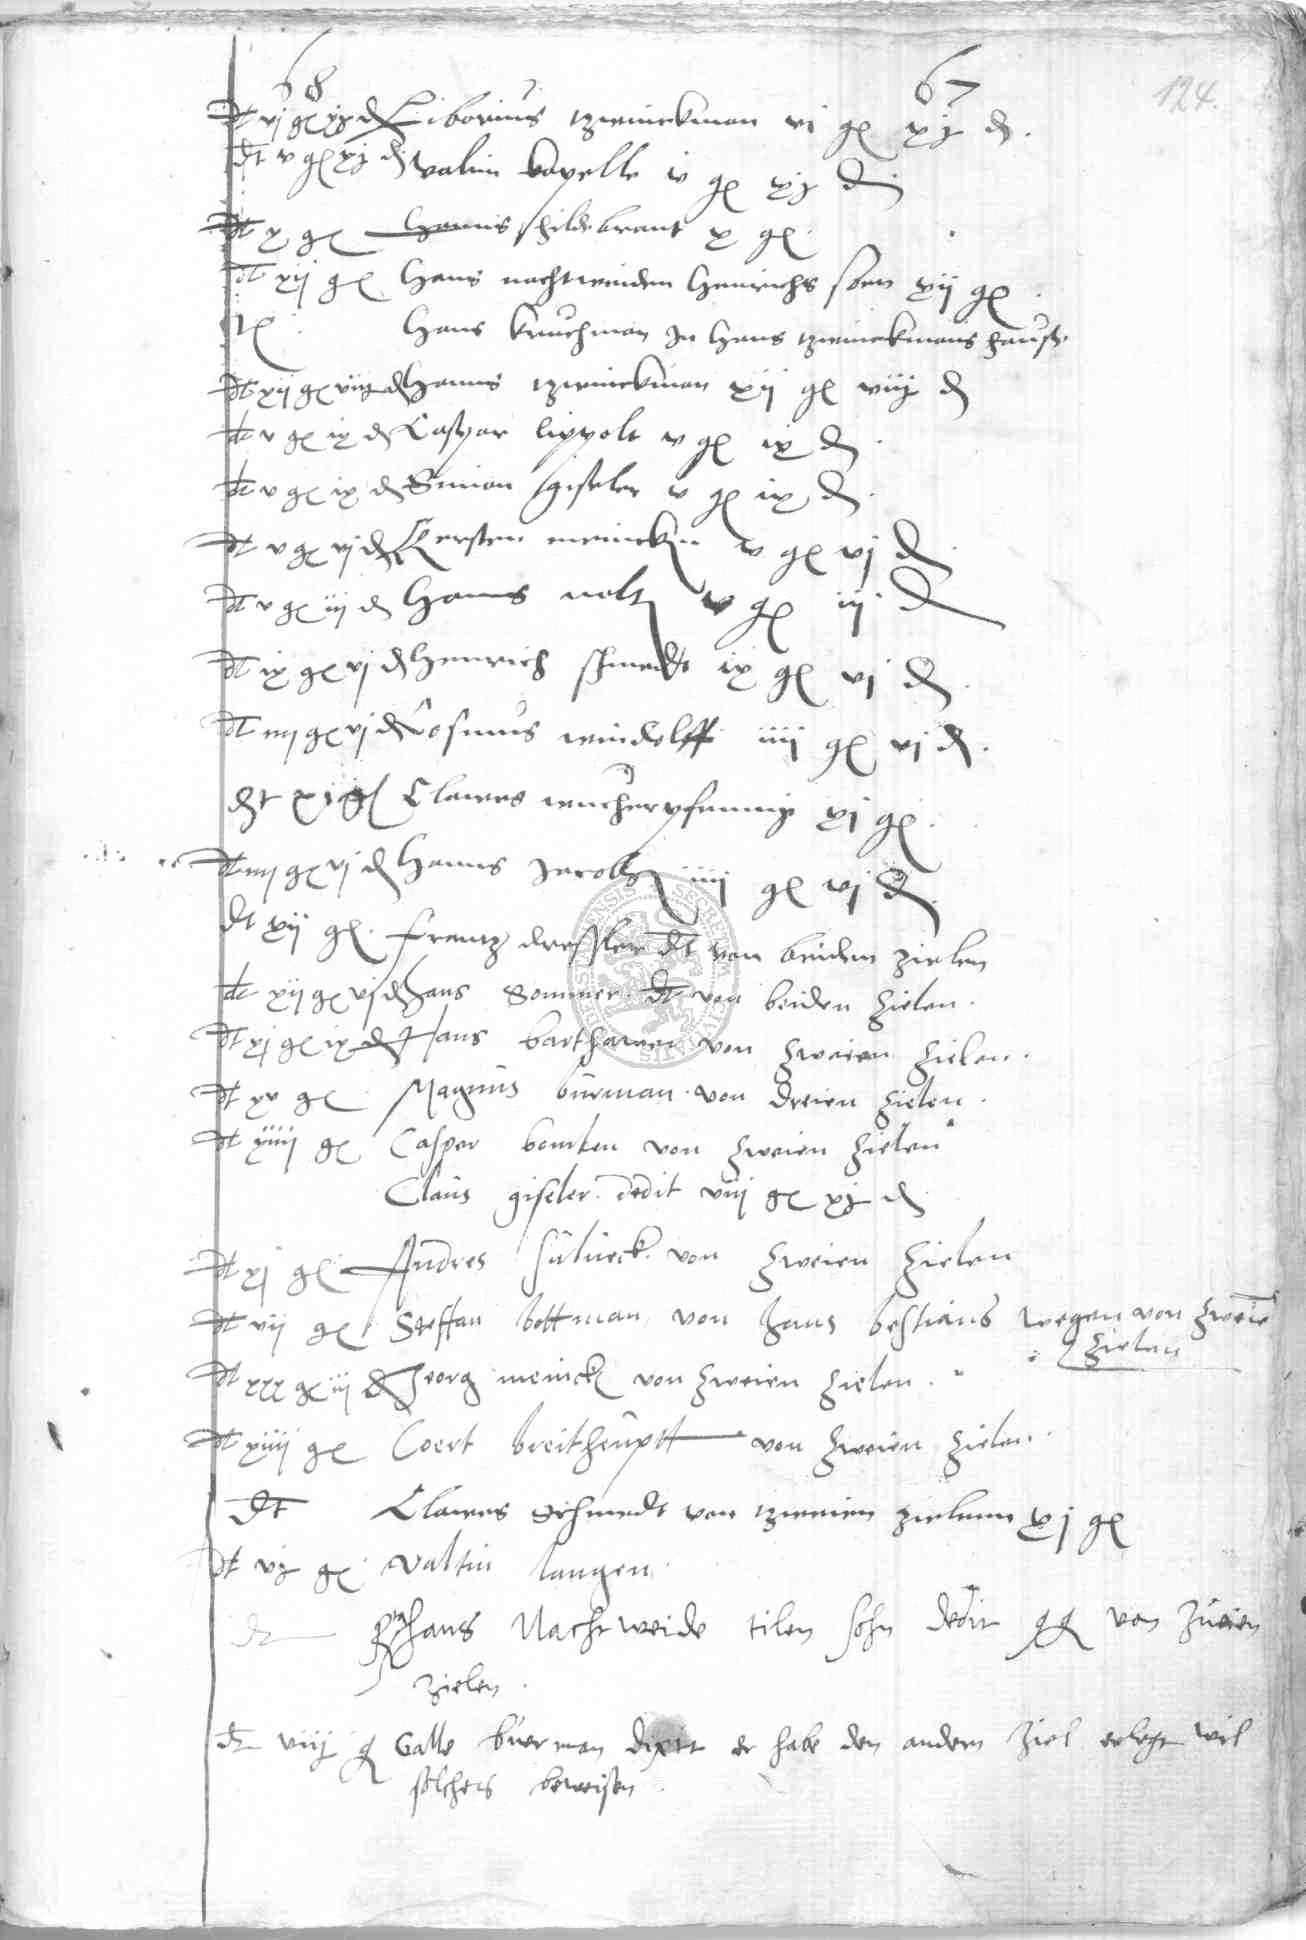 68 67 124.
dt vj gl xj d Liborius tzwinckman vi gl xj d.
dt v gl xj d valtin kapelle v gl xj d
dt x gl Hanns hildebrant x gl.
dt xij gl Hans nachtweiden Henrichs son xij gl.
Hans In Hans tzwinckmans hauss.
dt xij gl viij d Hanns tzwinckman xij gl viij d
dt v gl ix d Caspar lippolt v gl ix d.
dt v gl ix d Simon giseler v gl ix d.
dt v gl vj d Kersten meinecken v gl vj d.
dt v gl iij d Hanns nolt v gl iij d
dt ix gl vj d Henrich schmedt ix gl vj d.
dt iiij gl vj d Cosmus windolff iiij gl vj d.
dt xj gl Clawes wucherpfennig xj gl.
dt iiij gl vj d Hanns Jacobs iiij gl vj d.
dt xij gl. Frantz dressler dt von beiden zielen
dt xij gl vj d Hans Sommer. dt von beiden zielen.
dt xj gl ix d Hans barthawer von zweien zielen.
dt xv gl Magnus burman. von dreien zielen.
dt xiiij gl Casper bomken von zweien zielen
Claus giseler. dedit viij gl xj d
dt xj gl. Andres von zweien zielen
dt vij gl Steffan bottman von hans bestians wegen von zweien
zielen
dt xxx gl iij d Jeorg meineck von zweien zielen.
dt xiiij gl Coert breitheuptt von zweien zielen.
dt Clawes Schmedt von tzweien zielenn xj gl
dt vj gl Valtin langen.
dt Hans Nachtweide tilen sohn dedit von zweien
zielen.
dt viij g Galle buerman dixit er habe den andern ziel erlegt wil
solches beweisen.
SECRETVM CIVITATIS